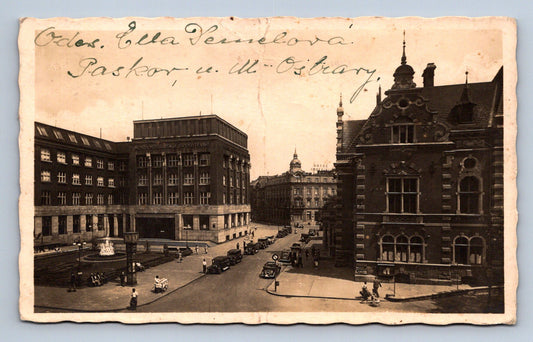 Odes. Ella Demelová
Paskov, u. M-Ostravy.